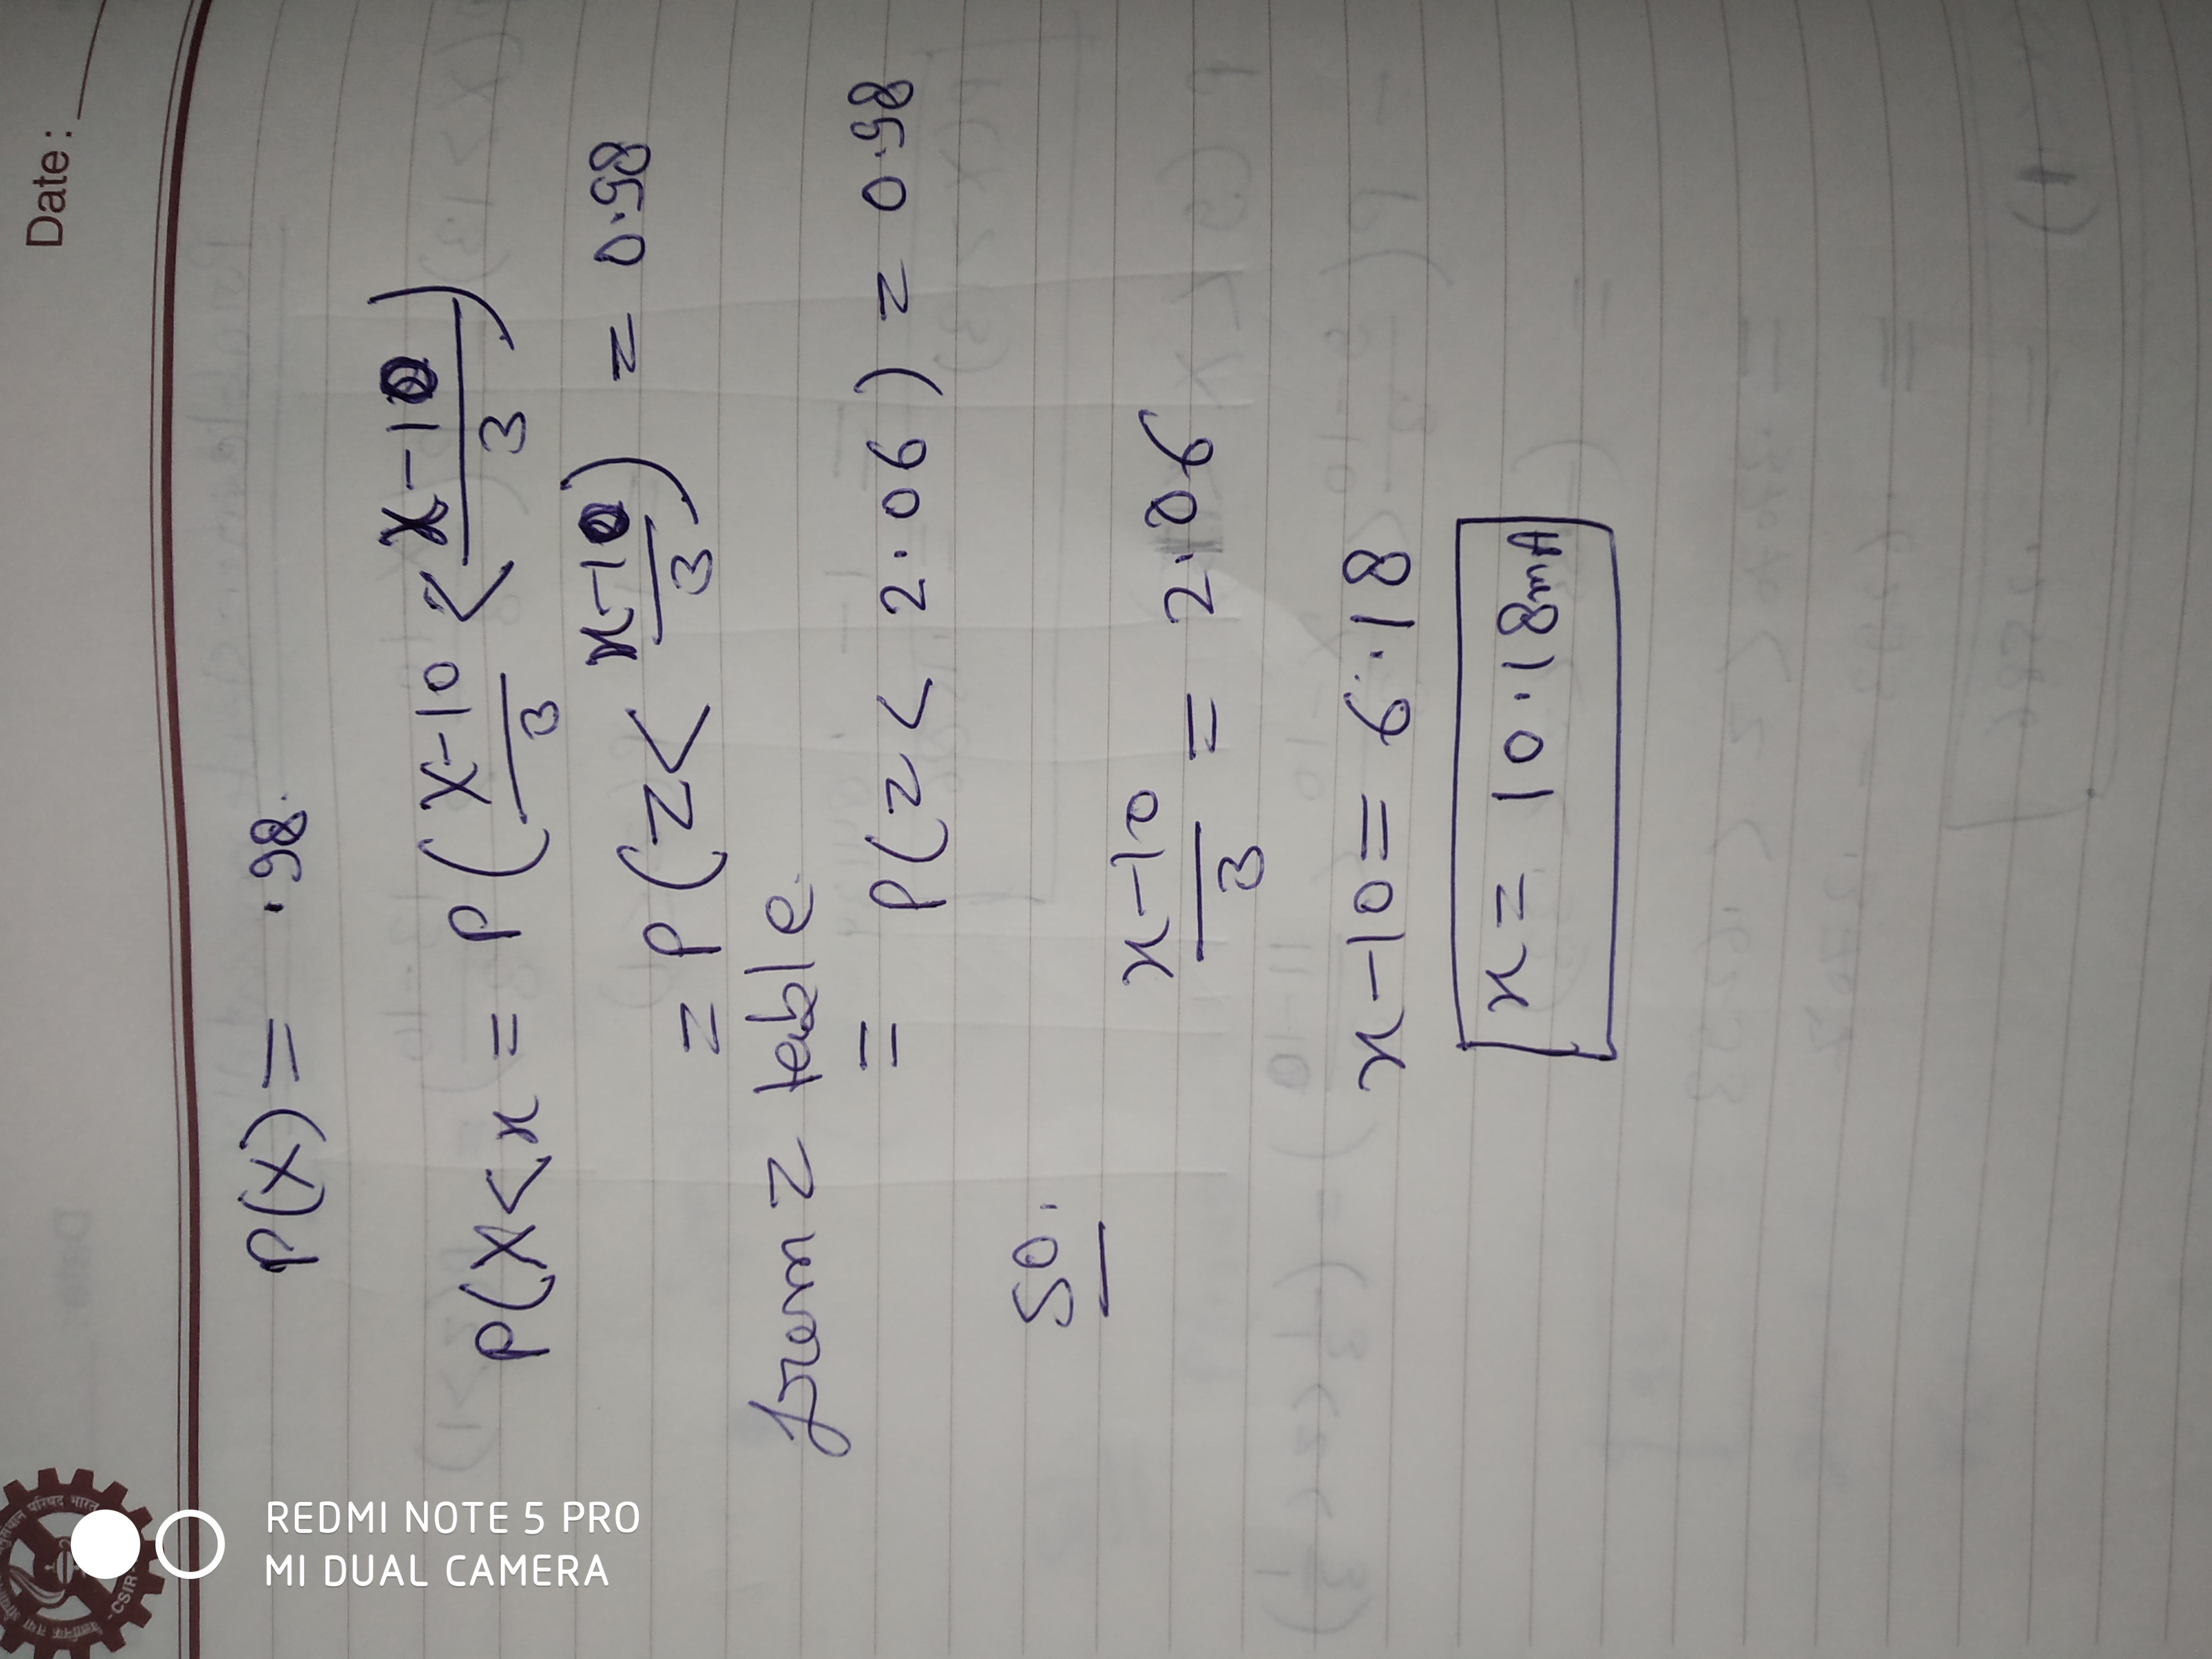 Date :
P(X) = .98.
P(X<x = P(X-10/3 < x-10/3)
= P(Z< x-10/3) = 0.98
from z table.
= P(z < 2.06) = 0.98
So.
x-10/3 = 2.06
x-10 = 6.18
x = 10.18mA
CSIR
REDMI NOTE 5 PRO
MI DUAL CAMERA